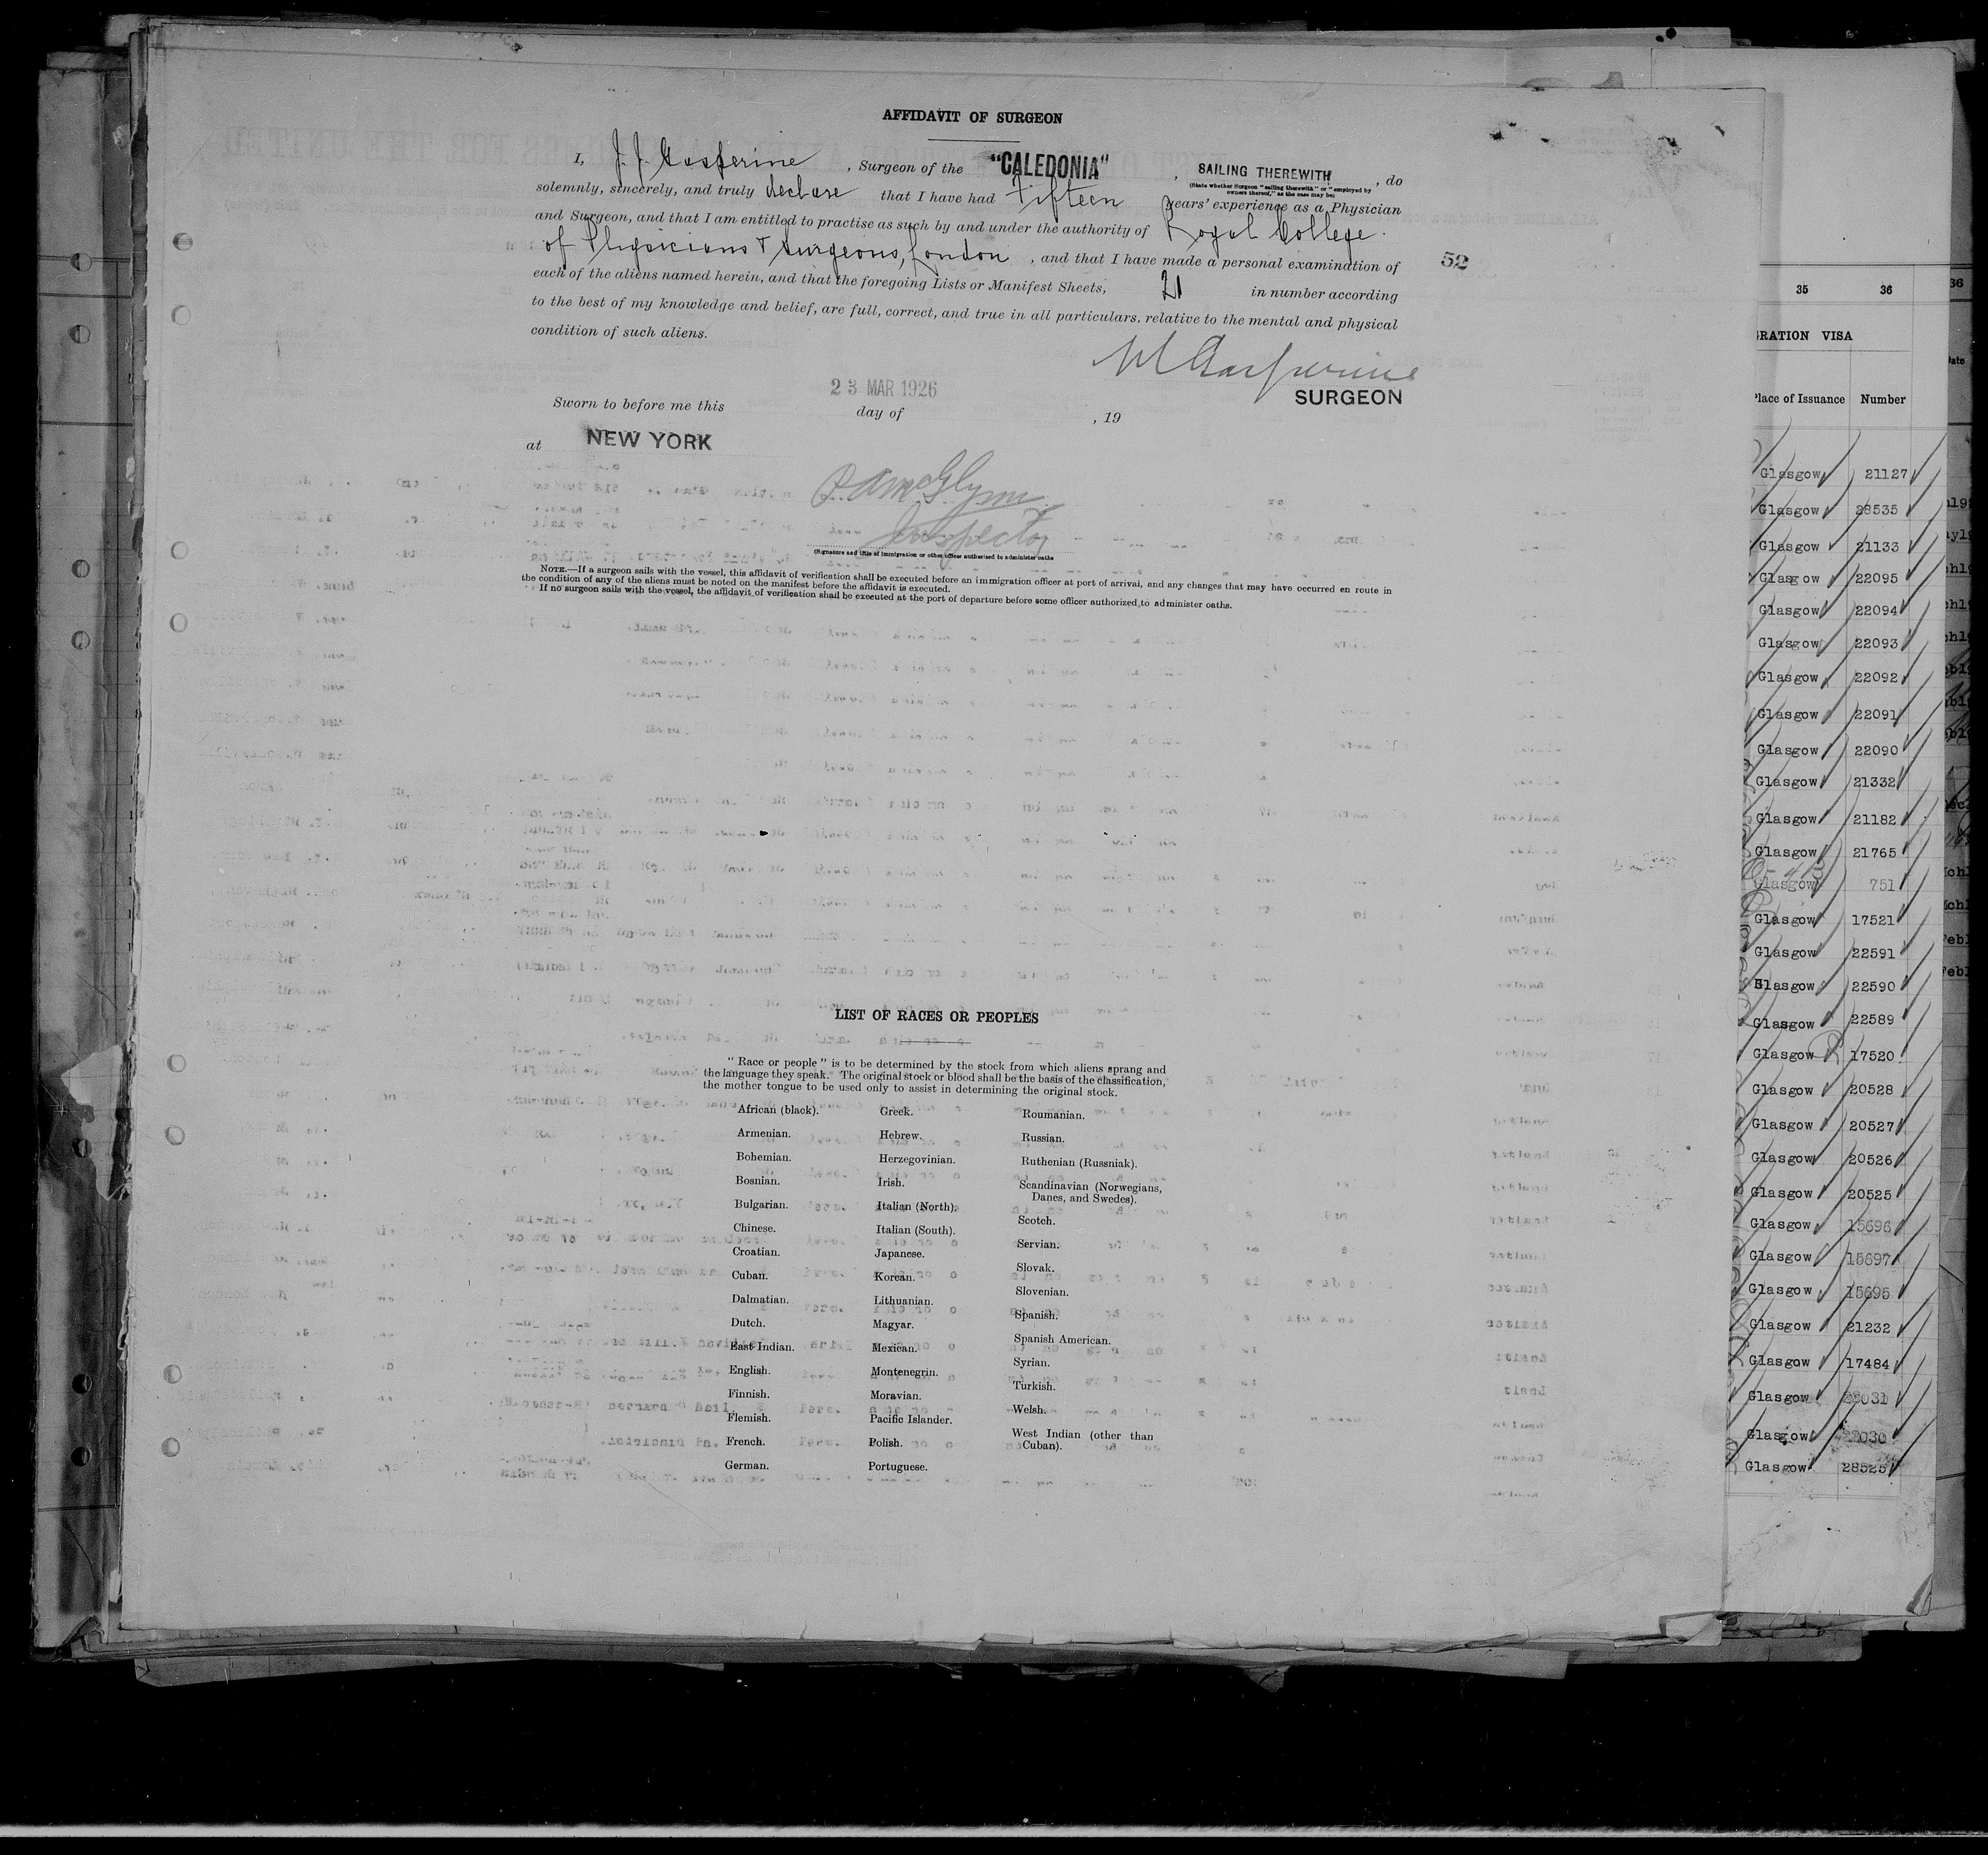 AFFIDAVIT OF SURGEON
I, J. J. Gasperine, Surgeon of the "CALEDONIA", SAILING THEREWITH, do
(State whether Surgeon "sailing therewith" or "employed by owners thereof," as the case may be)
solemnly, sincerely, and truly declare that I have had Fifteen years' experience as a Physician
and Surgeon, and that I am entitled to practise as such by and under the authority of Royal College
of Physicians & Surgeons, London, and that I have made a personal examination of
52
each of the aliens named herein, and that the foregoing Lists or Manifest Sheets, 21 in number according
to the best of my knowledge and belief, are full, correct, and true in all particulars, relative to the mental and physical
condition of such aliens.
SURGEON
23 MAR 1926
Sworn to before me this day of , 19
at NEW YORK
McGlynn
Inspector
(Signature and title of immigration or other officer authorized to administer oaths
NOTE.—If a surgeon sails with the vessel, this affidavit of verification shall be executed before an immigration officer at port of arrival, and any changes that may have occurred en route in
the condition of any of the aliens must be noted on the manifest before the affidavit is executed.
If no surgeon sails with the vessel, the affidavit of verification shall be executed at the port of departure before some officer authorized to administer oaths.
LIST OF RACES OR PEOPLES
"Race or people" is to be determined by the stock from which aliens sprang and
the language they speak. The original stock or blood shall be the basis of the classification,
the mother tongue to be used only to assist in determining the original stock.
African (black).
Armenian.
Bohemian.
Bosnian.
Bulgarian.
Chinese.
Croatian.
Cuban.
Dalmatian.
Dutch.
East Indian.
English.
Finnish.
Flemish.
French.
German.
Greek.
Hebrew.
Herzegovinian.
Irish.
Italian (North).
Italian (South).
Japanese.
Korean.
Lithuanian.
Magyar.
Mexican.
Montenegrin.
Moravian.
Pacific Islander.
Polish.
Portuguese.
Roumanian.
Russian.
Ruthenian (Russniak).
Scandinavian (Norwegians,
Danes, and Swedes).
Scotch.
Servian.
Slovak.
Slovenian.
Spanish.
Spanish American.
Syrian.
Turkish.
Welsh.
West Indian (other than
Cuban).
35 36
GRATION VISA
Place of Issuance Number
Glasgow 21127
Glasgow 28535
Glasgow 21133
Glasgow 22095
Glasgow 22094
Glasgow 22093
Glasgow 22092
Glasgow 22091
Glasgow 22090
Glasgow 21332
Glasgow 21182
Glasgow 21765
Glasgow 751
Glasgow 17521
Glasgow 22591
Glasgow 22590
Glasgow 22589
Glasgow 17520
Glasgow 20528
Glasgow 20527
Glasgow 20526
Glasgow 20525
Glasgow 15696
Glasgow 15697
Glasgow 15695
Glasgow 21232
Glasgow 17484
Glasgow
Glasgow
Glasgow 28525
36